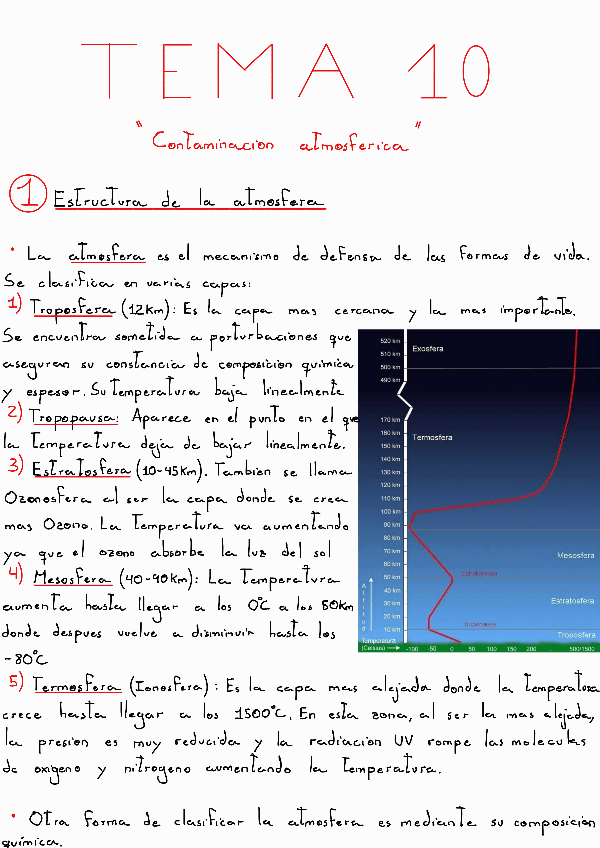 TEMA 10
"Contaminacion atmosferica"
1 Estructura de la atmosfera
· La atmosfera es el mecanismo de defensa de las formas de vida.
Se clasifica en varias capas:
1) Troposfera (12Km): Es la capa mas cercana y la mas importante.
Se encuentra sometida a porturbaciones que
aseguran su constancia de composicion quimica
y espesor. Su Temperatura baja linealmente
2) Tropopausa: Aparece en el punto en el que
la Temperatura deja de bajar linealmente.
3) Estratosfera (10-45Km). Tambien se llama
Ozonosfera al ser la capa donde se crea
mas Ozono. La Temperatura va aumentando
ya que el ozono absorbe la luz del sol
4) Mesosfera (40-90Km): La Temperatura
aumenta hasta llegar a los 0ºC a los 50Km
donde despues vuelve a disminuir hasta los
-80ºC
520 km
510 km
500 km
490 km
170 km
160 km
150 km
140 km
130 km
120 km
110 km
100 km
90 km
80 km
70 km
60 km
50 km
40 km
30 km
20 km
10 km
Exosfera
Termosfera
Mesosfera
Estratopausa
Estratosfera
Tropopausa
Troposfera
Altitud
Temperatura
(Celsius)
-100 -50 0 50 100 150 200 500/1500
5) Termosfera (Ionosfera): Es la capa mas alejada donde la Temperatura
crece hasta llegar a los 1500ºC. En esta zona, al ser la mas alejada,
la presion es muy reducida y la radiacion UV rompe las moleculas
de oxigeno y nitrogeno aumentando la Temperatura.
· Otra forma de clasificar la atmosfera es mediante su composicion
quimica.